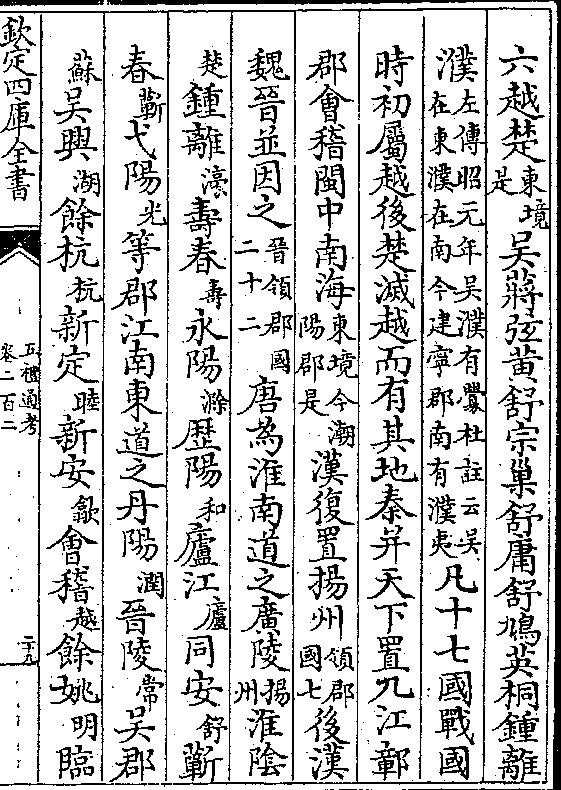 六越楚東境是吳蔣弦黄舒宗巢舒庸舒鳩英桐鍾離
濮左傳昭元年吳濮有釁杜註云吳在東濮在南今建寧郡南有濮夷凡十七國戰國
時初屬越後楚滅越而有其地秦并天下置九江鄣
郡會稽閩中南海東境今潮陽郡是漢復置揚州領郡國七後漢
魏晉並因之晉領郡國二十二唐為淮南道之廣陵揚州淮陰
楚鍾離濠壽春壽永陽滁歴陽和廬江廬同安舒蘄
春蘄弋陽光等郡江南東道之丹陽潤晉陵常吳郡
蘇吳興湖餘杭杭新定睦新安歙會稽越餘姚明臨
欽定四庫全書
五禮通考
卷二百二
二十九